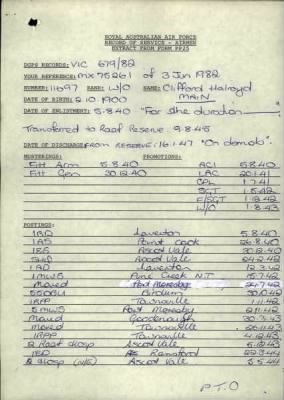 ROYAL AUSTRALIAN AIR FORCE
RECORD OF SERVICE - AIRMEN
EXTRACT FROM FORM PP25
DGPS RECORDS: VIC 679/82
YOUR REFERENCE: MX75261 of 3 Jun 1982
NUMBER: 11697 RANK: W/O NAME: Clifford Halroyd
MAIN
DATE OF BIRTH: 2.10.1900
DATE OF ENLISTMENT: 5.8.40 "For the duration
Transferred to Raaf Reserve. 9.8.45
DATE OF DISCHARGE FROM RESERVE: 16.1.47 "On demob".
MUSTERINGS: PROMOTIONS:
Fitt Arm 5.8.40 AC1 5.8.40
Fitt Gen 30.12.40 LAC 20.1.41
CPL 1.7.41
SGT 1.5.42
F/SGT 1.12.42
W/O 1.8.43
POSTINGS:
1RD Laverton 5.8.40
1AS Point Cook 26.8.40
1ES Ascot Vale 30.12.40
Ascot Vale 24.2.42
1AD Laverton 12.3.42
1MWS Pine Creek N.T 15.7.42
Moved Port Moresby
55OBU Birdum 30.10.42
1RPP Townsville 1.11.42
5MWS Port Moresby 21.11.42
Moved Goodenough 30.3.43
Moved Townsville 26.11.43
1RPP Townsville 4.12.43
Ascot Vale 5.12.43
1ED Ransford 22.3.44
Ascot Vale 5.5.44
P.T.O